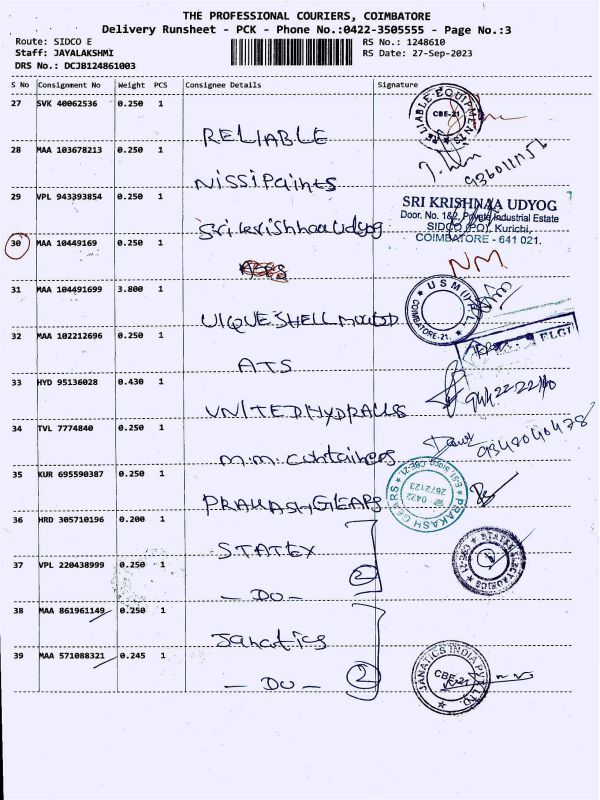 THE PROFESSIONAL COURIERS, COIMBATORE
Delivery Runsheet - PCK - Phone No.:0422-3505555 - Page No.:3
Route: SIDCO E
RS No.: 1248610
Staff: JAYALAKSHMI
RS Date: 27-Sep-2023
DRS No.: DCJB124861003
S No Consignment No Weight PCS Consignee Details Signature
27 SVK 40062536 0.250 1
RELIABLE
RELIABLE EQUIPMENTS
CBE-21
28 MAA 103678213 0.250 1
Nissi Paints
29 VPL 943393854 0.250 1
Sri krishnaa Udyog
SRI KRISHNAA UDYOG
Door. No. 1&2, Private Industrial Estate
SIDCO (PO), Kurichi,
COIMBATORE - 641 021.
30 MAA 10449169 0.250 1
NM
31 MAA 104491699 3.800 1
UIQUE SHELL MOULD
USM (I) P. LTD
COIMBATORE-21.
32 MAA 102212696 0.250 1
ATS
ELGI
33 HYD 95136028 0.430 1
UNITED HYDRAULS
34 TVL 7774840 0.250 1
M.M. Containers
9347040478
35 KUR 695590387 0.250 1
PRAKASH GEARS
PRAKASH GEARS
0422
2672123
36 HRD 305710196 0.200 1
STATEX
37 VPL 220438999 0.250 1
- DO - 2
38 MAA 861961149 0.250 1
Janatics
39 MAA 571088321 0.245 1
- DO - 2
JANATICS INDIA PVT LTD.
CBE-21